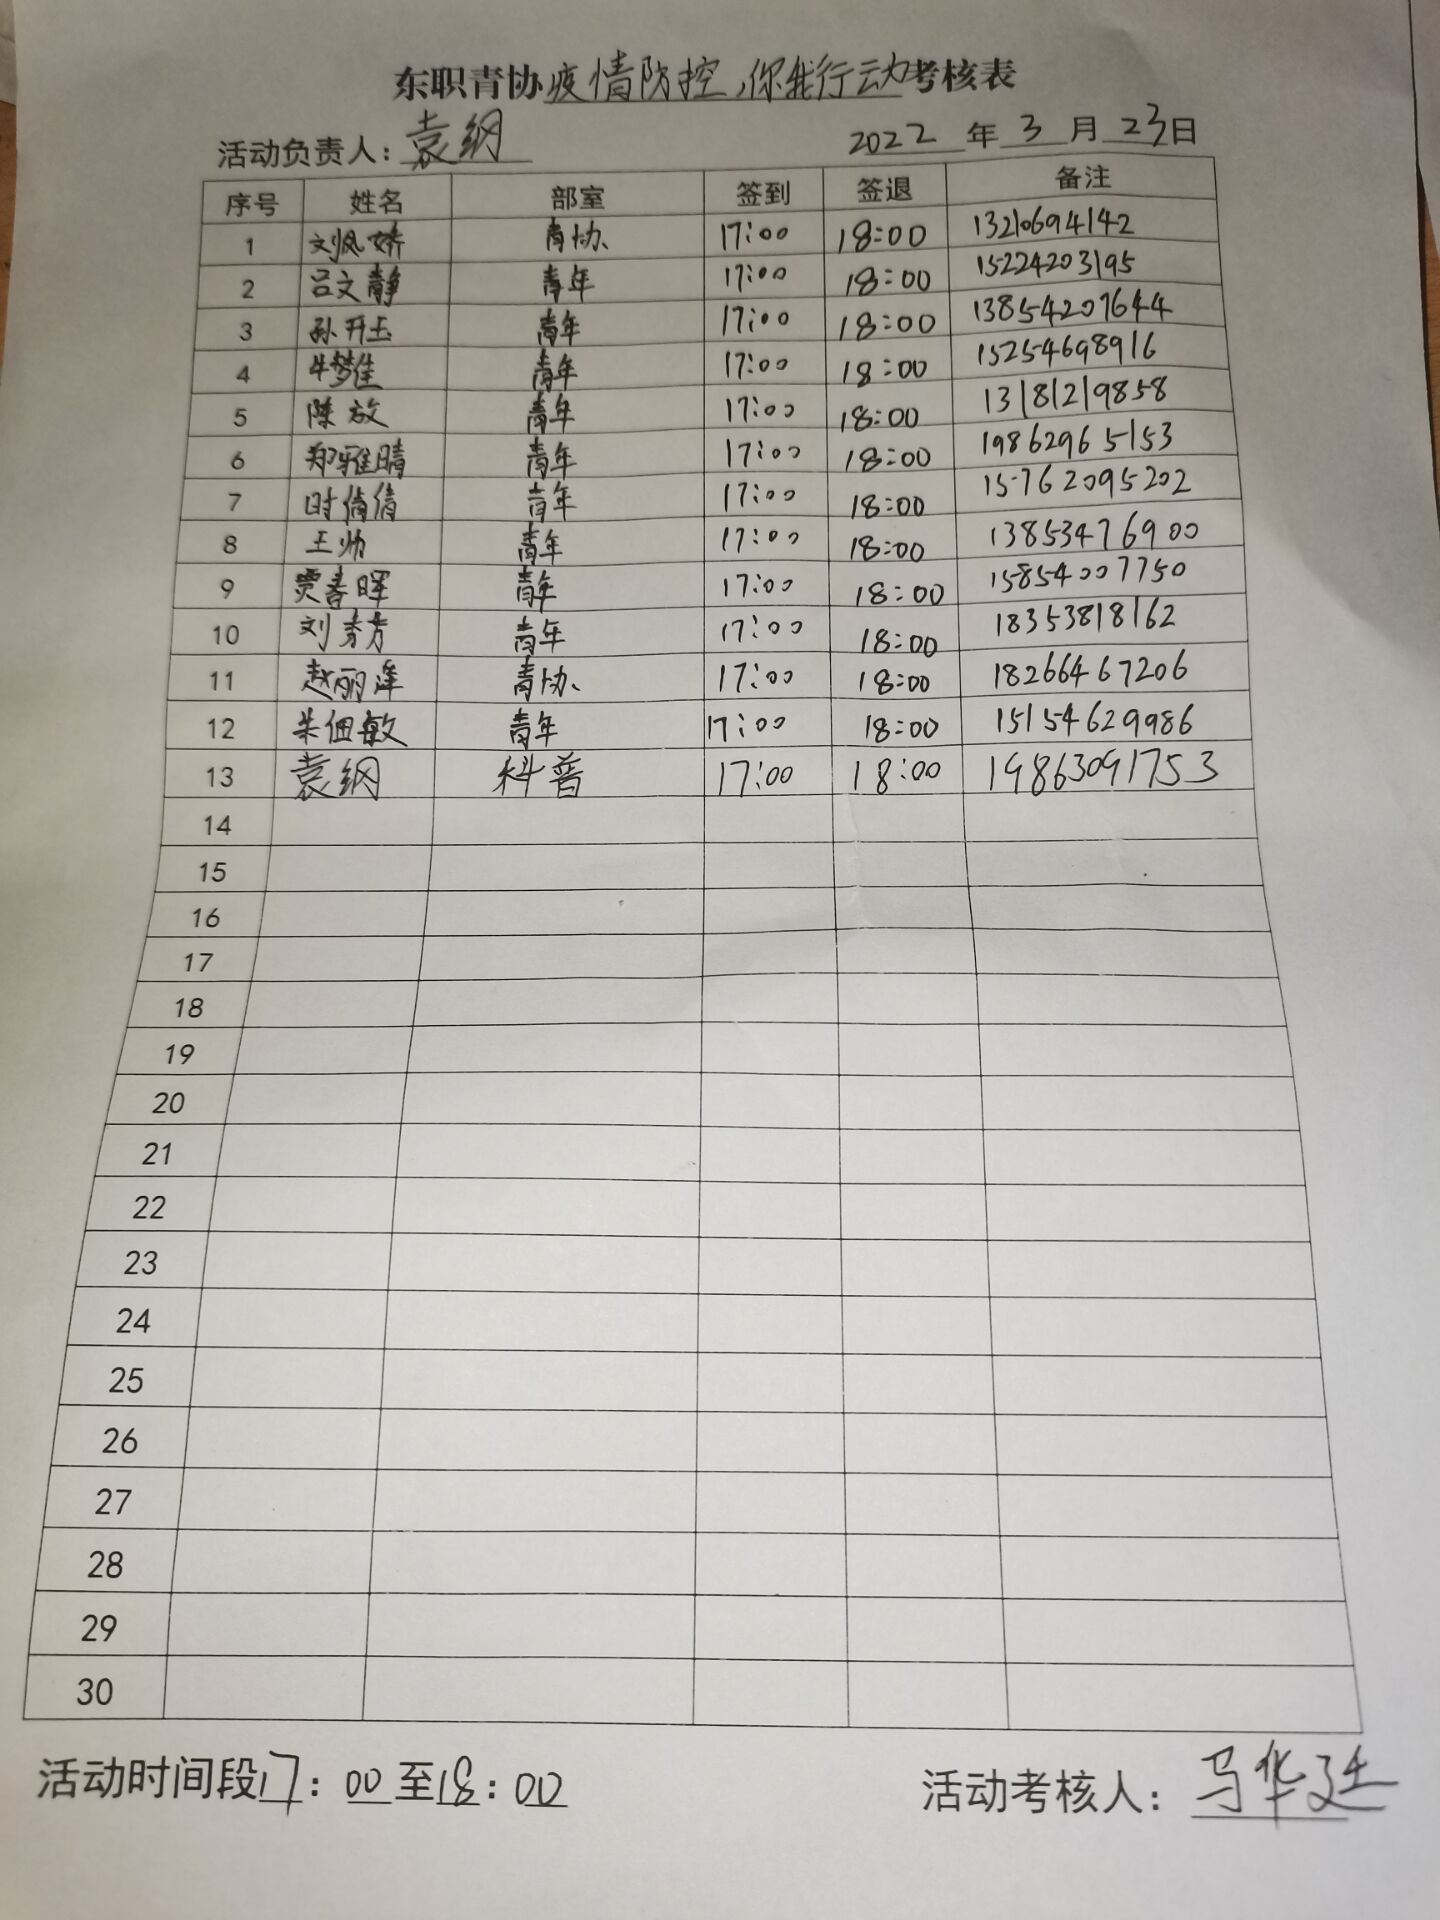 东职青协疫情防控,你我行动考核表
活动负责人:袁纲 2022年3月23日
序号 姓名 部室 签到 签退 备注
1 刘凤娇 青协 17:00 18:00 13210694142
2 吕文静 青年 17:00 18:00 15224203195
3 孙开玉 青年 17:00 18:00 13854207644
4 牛梦佳 青年 17:00 18:00 15254698916
5 陈放 青年 17:00 18:00 13181219858
6 郑雅晴 青年 17:00 18:00 19862965153
7 时倩倩 青年 17:00 18:00 15762095202
8 王帅 青年 17:00 18:00 13853476900
9 贾春晖 青年 17:00 18:00 15854007750
10 刘秀芳 青年 17:00 18:00 18353818162
11 赵丽 青协 17:00 18:00 18266467206
12 朱佃敏 青年 17:00 18:00 15154629986
13 袁纲 科普 17:00 18:00 19863091753
14
15
16
17
18
19
20
21
22
23
24
25
26
27
28
29
30
活动时间段17:00至18:00 活动考核人:马华廷